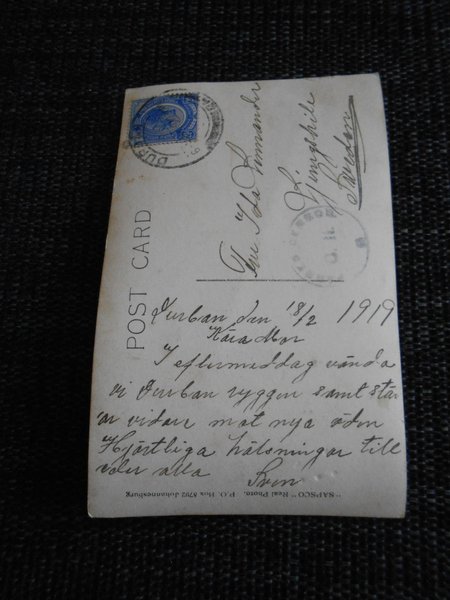 POST CARD
DURBAN
Fru Ida
Sweden
Durban den 18/2 1919
Kära Mor
I eftermiddag vända
vi Durban ryggen samt stär
ar vidare mot nya öden
Hjärtliga hälsningar till
eder alla Sven
"SAPSCO" Real Photo, P.O. Box 5792 Johannesburg